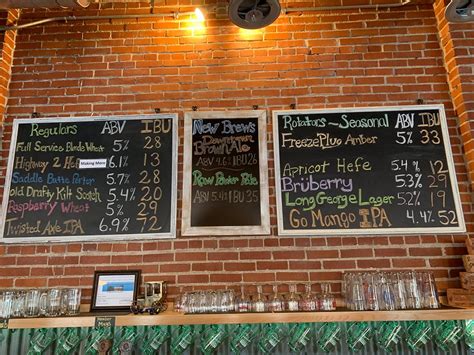 Regulars ABV IBU
Full Service Blonde Wheat 5% 28
Highway 2 Hef Making More 6.1% 13
Saddle Butte Porter 5.7% 28
Old Drafty Kilt Scotch 5.4% 20
Raspberry Wheat 5% 29
Twisted Axe IPA 6.9% 72
New Brews
Downtown
Brown Ale
ABV 4.6% IBU 26
Raw Powder Pale
ABV 5.4% IBU 35
Rotators ~ Seasonal ABV IBU
FreezePluo Amber 5% 33
Apricot Hefe 5.4% 12
Brüberry 53% 29
Long George Lager 52% 19
Go Mango IPA 4.4% 52